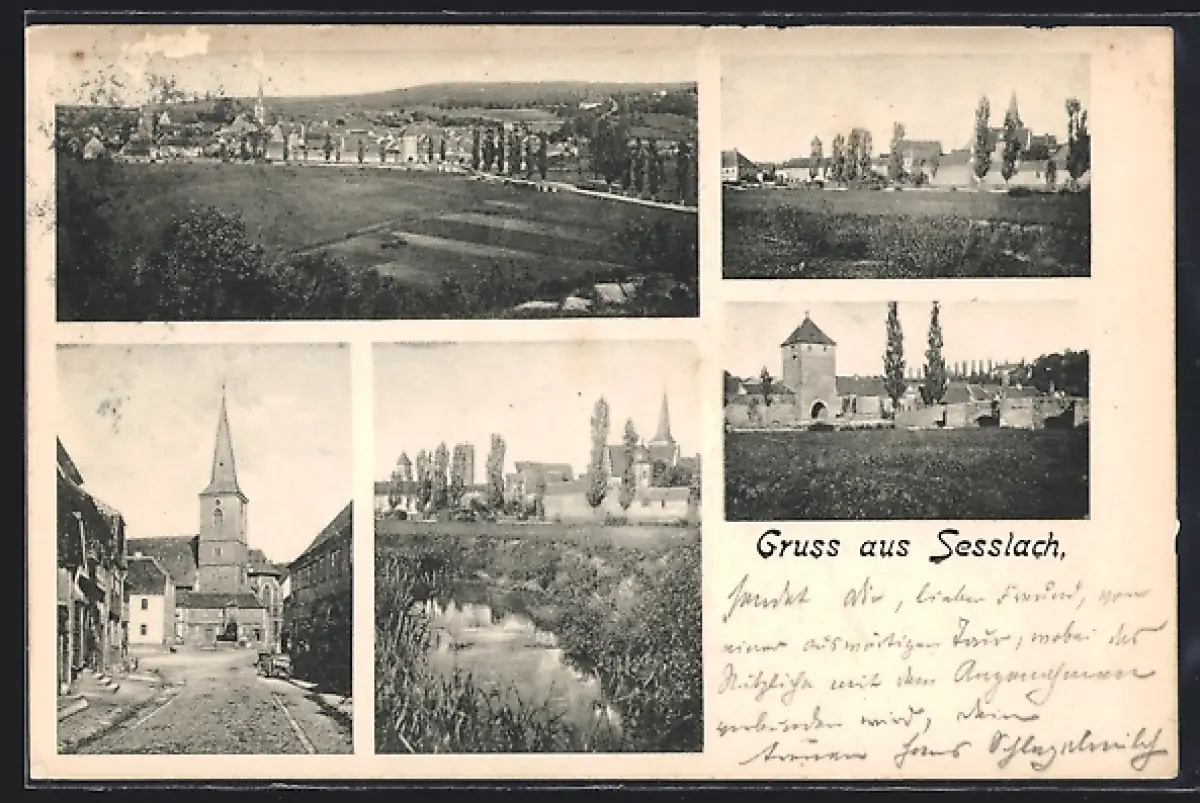 Gruss aus Sesslach,
sendet Dir, lieber Freund, von
einer auswärtigen Tour, wobei das
Nützliche mit dem Angenehmen
verbunden wird, Dein
treuer Hans Schlegelmilch